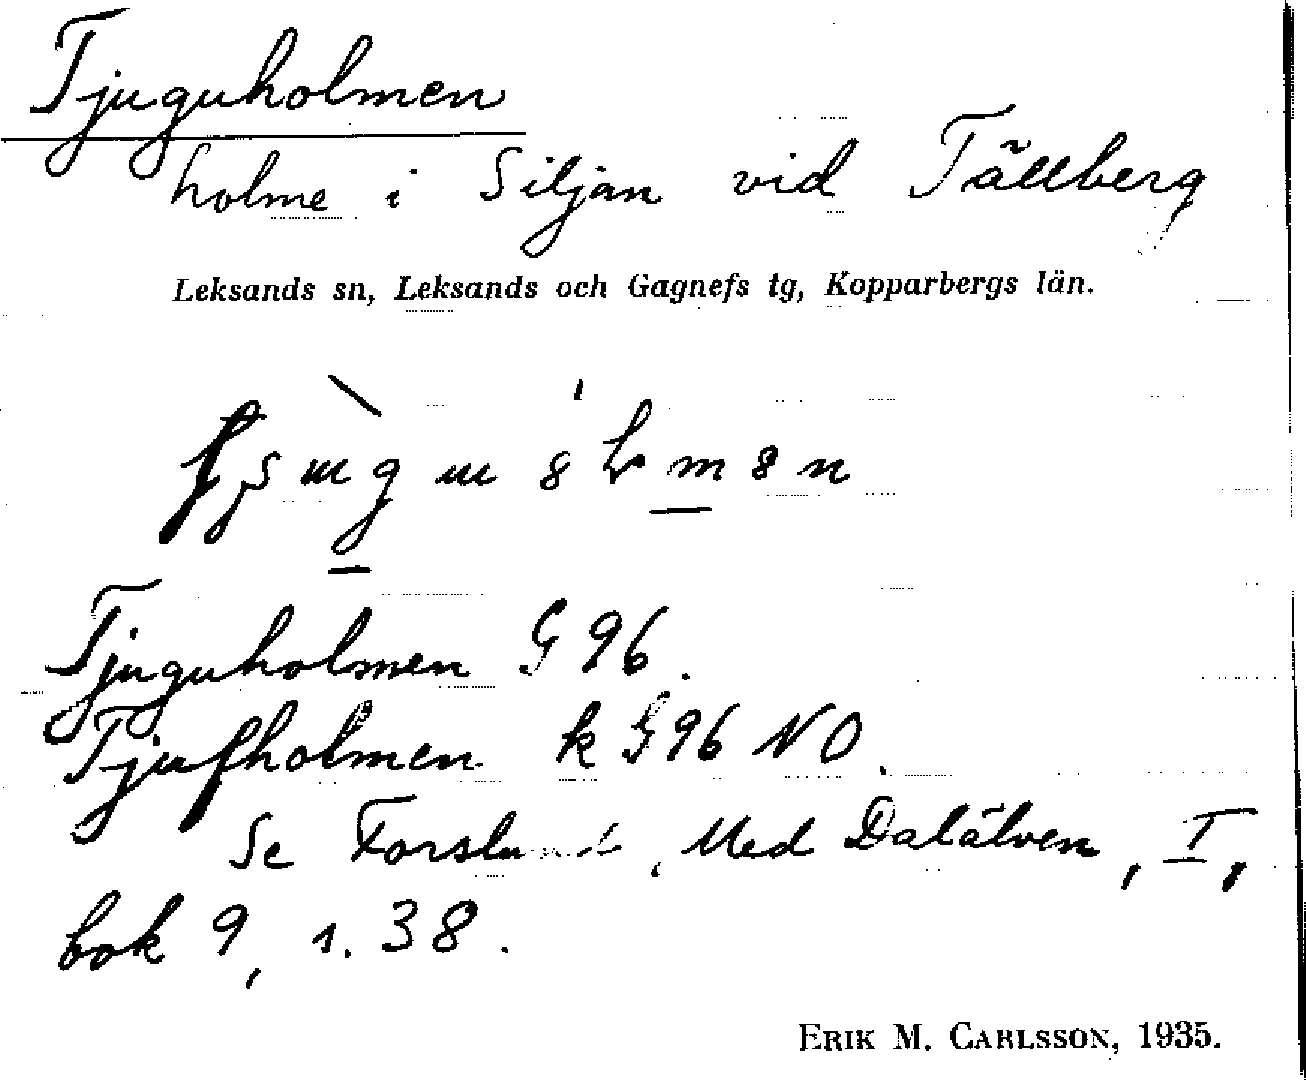 Tjuguholmen
holme i Siljan vid Tällberg
Leksands sn, Leksands och Gagnefs tg, Kopparbergs län.
Tjuguholmen G 96.
Tjufholmen k G 96 NO.
Se Forslund, Med Dalälven, I,
bok 9, s. 38.
ERIK M. CARLSSON, 1935.